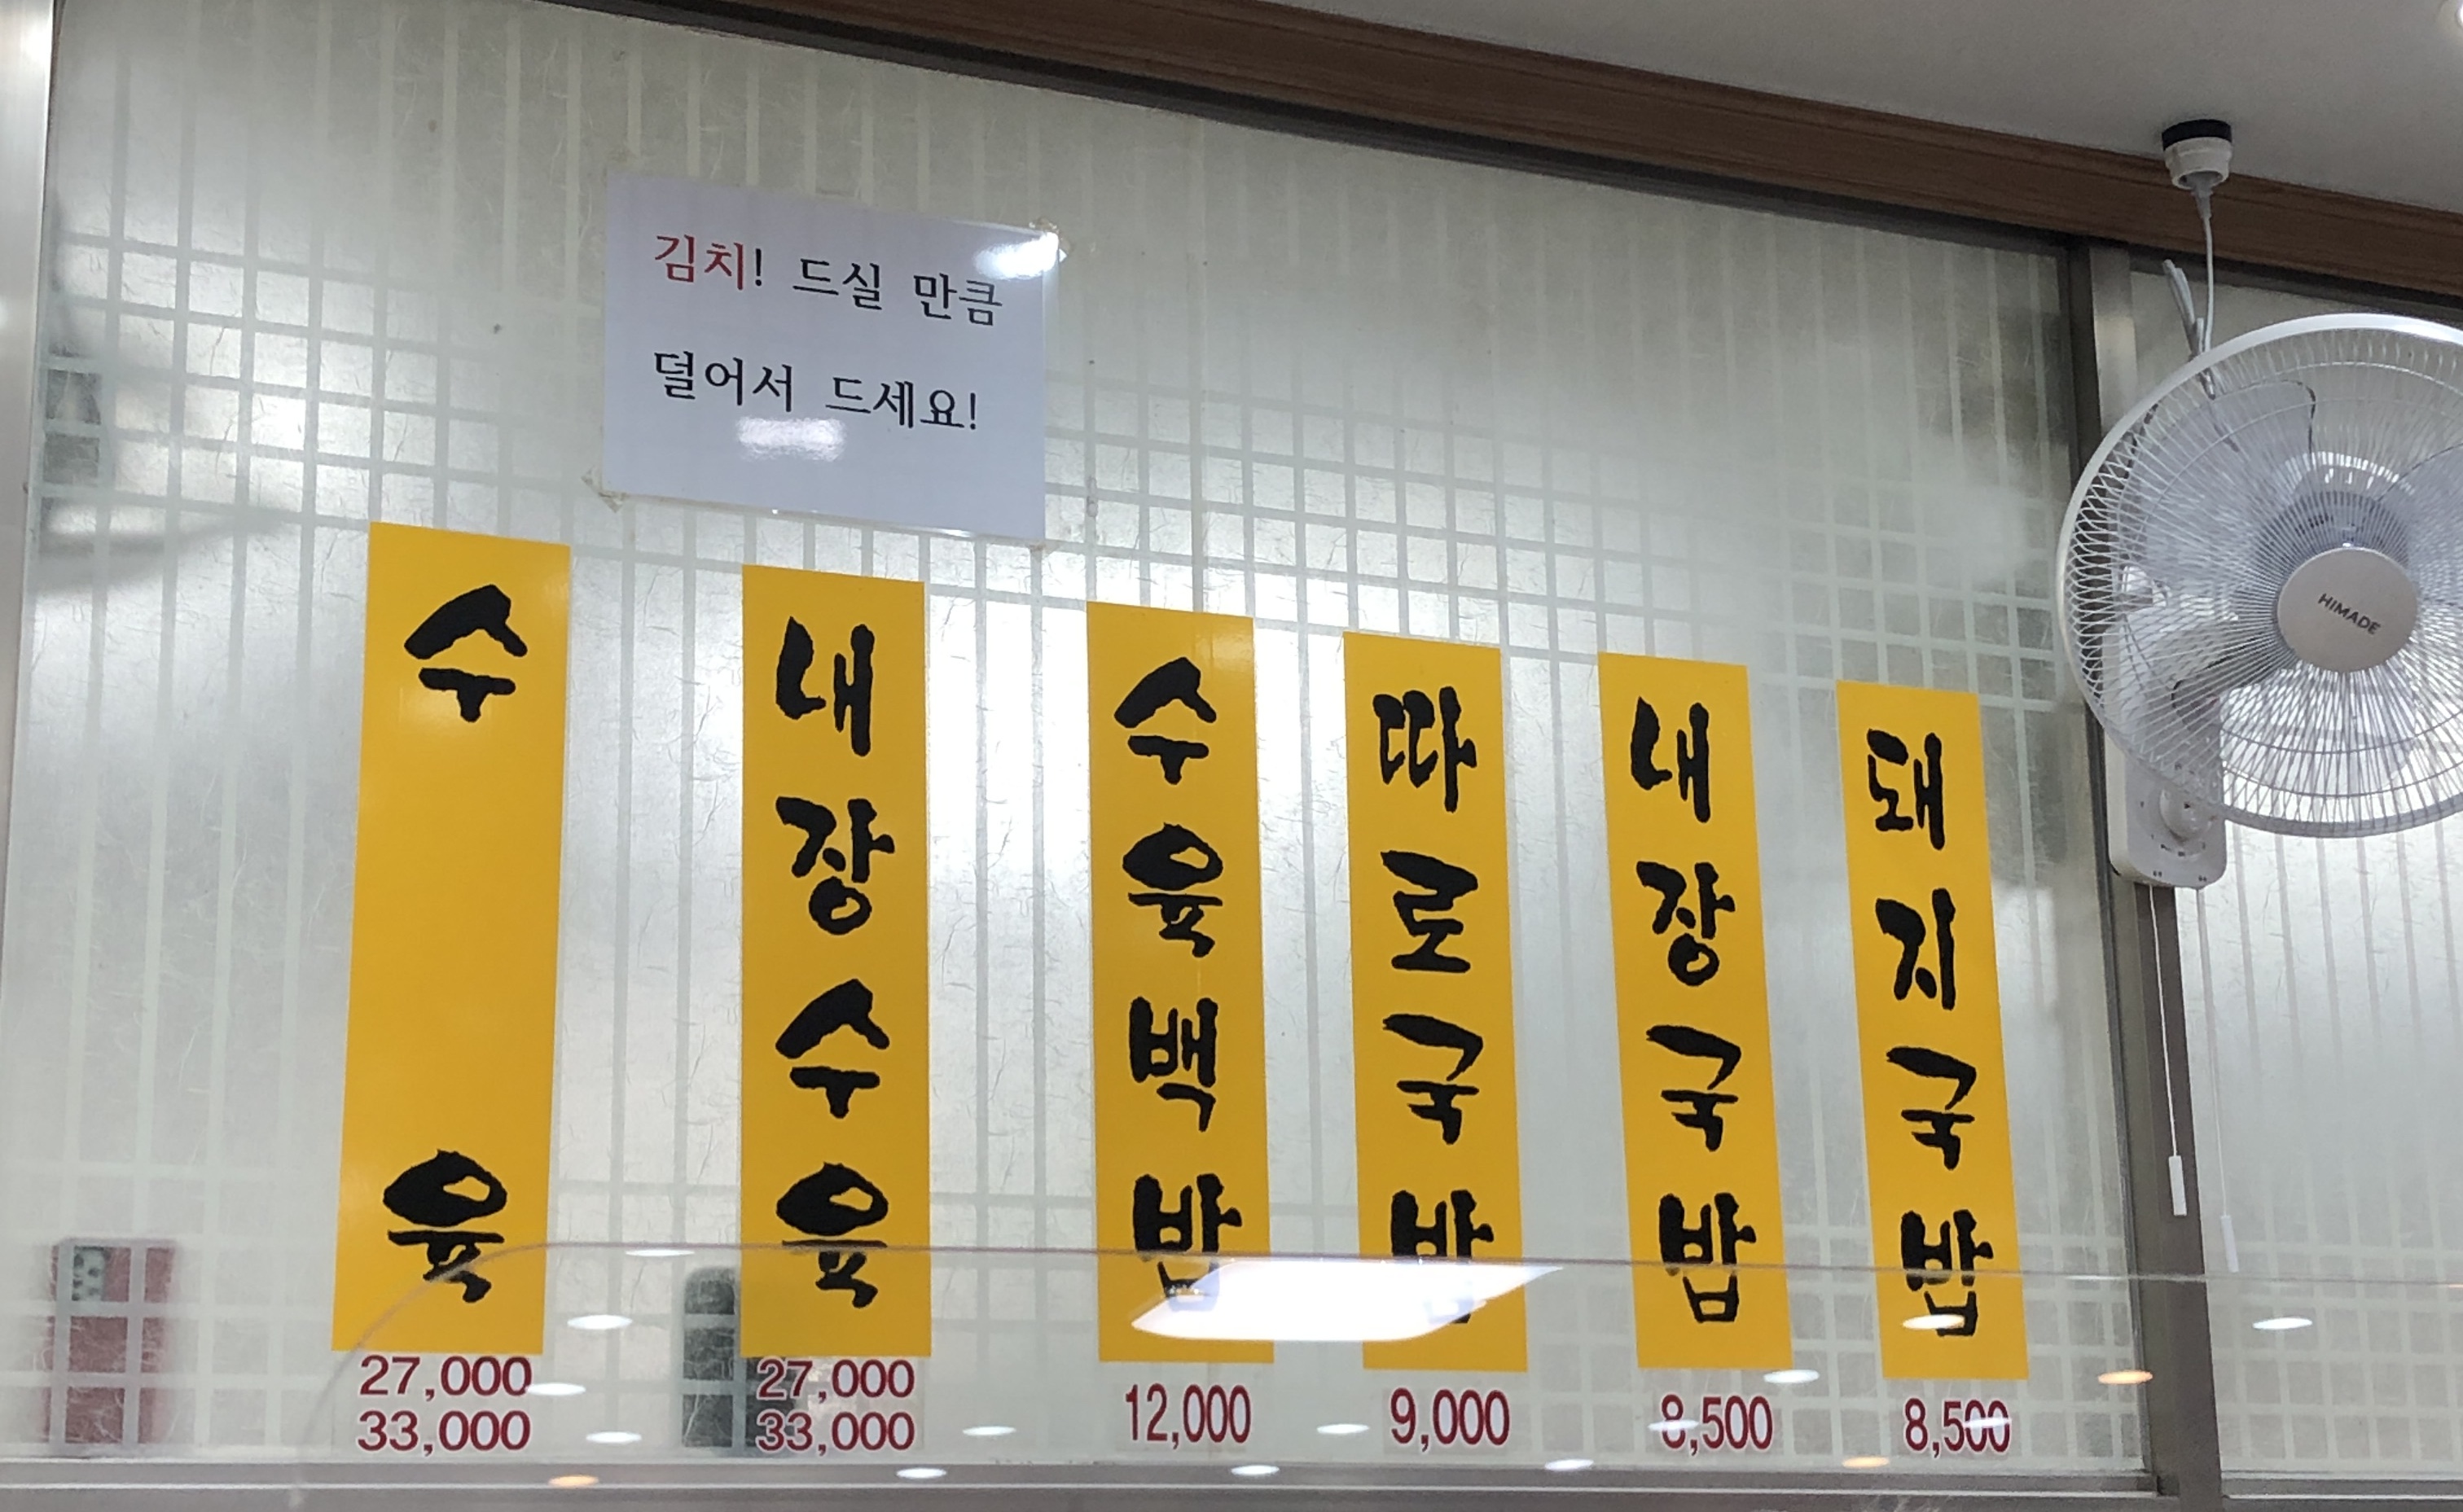 김치! 드실 만큼
덜어서 드세요!
수육
27,000
33,000
내장수육
27,000
33,000
수육백밥
12,000
따로국밥
9,000
내장국밥
8,500
돼지국밥
8,500
HIMADE